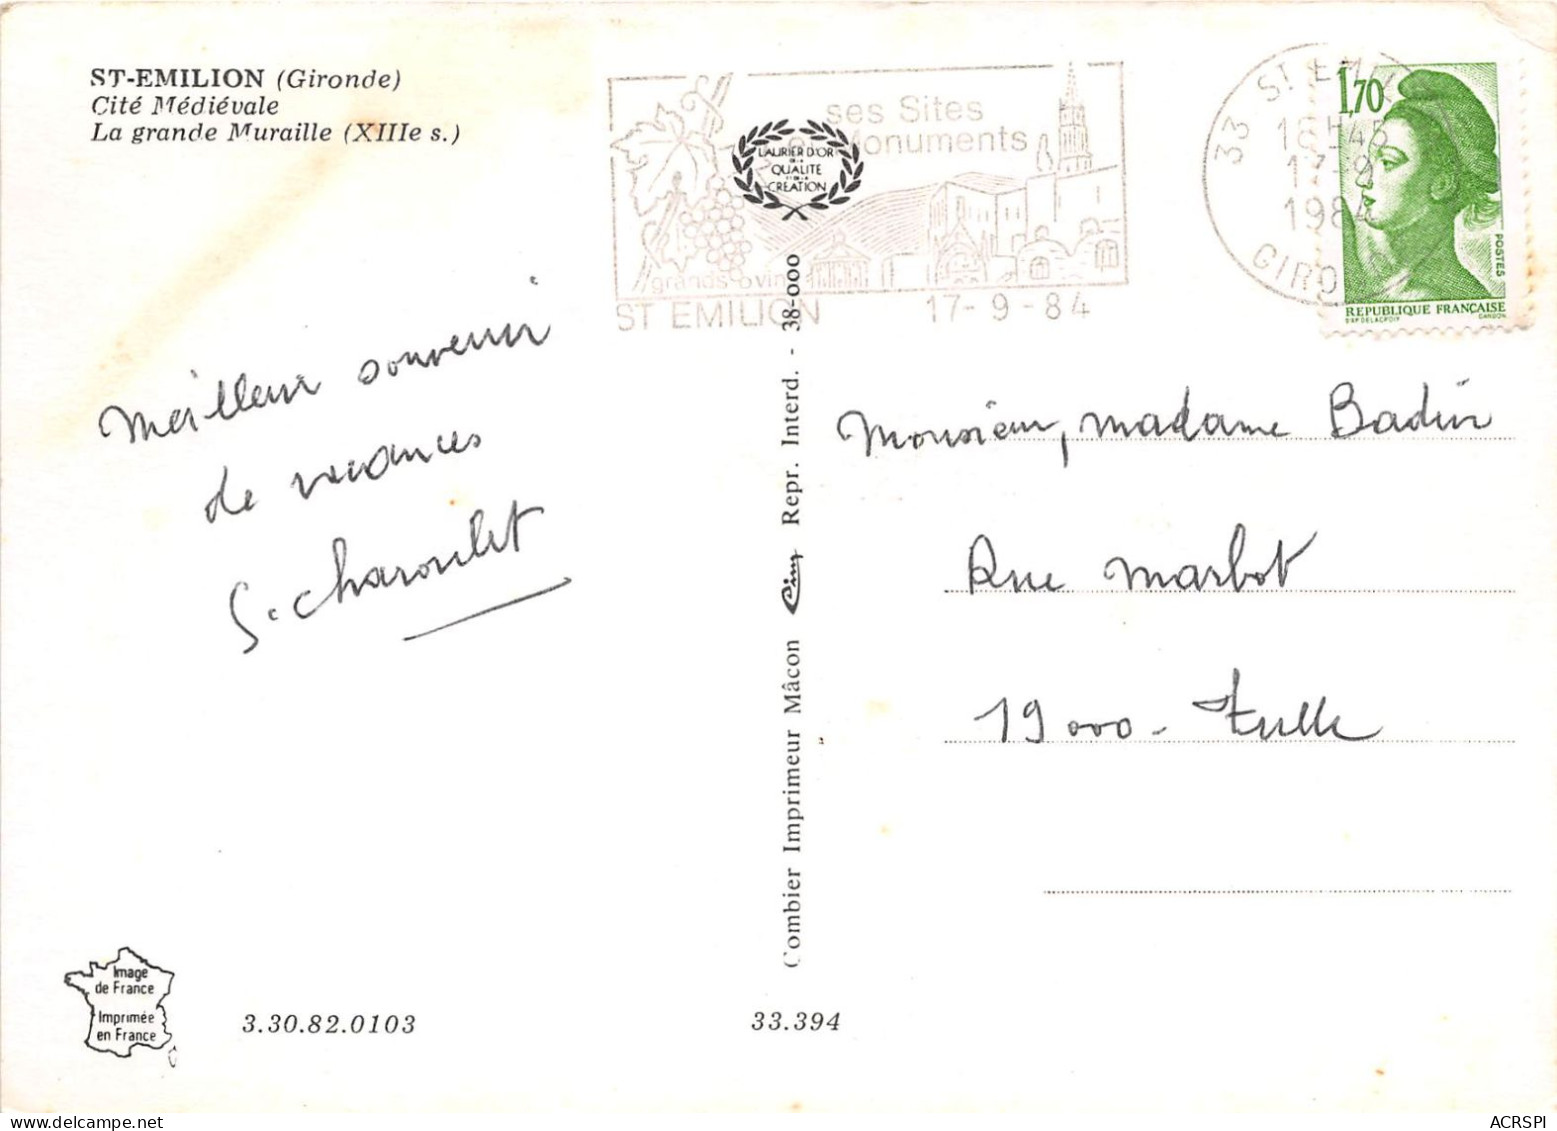 ST-EMILION (Gironde)
Cité Médiévale
La grande Muraille (XIIIe s.)
ses Sites
Monuments
grands vins
ST EMILION 17-9-84
LAURIER D'OR
DE LA
QUALITÉ
ET DE LA
CRÉATION
33 ST EMILION
18H45
17-9
1984
GIRONDE
1,70
POSTES
REPUBLIQUE FRANÇAISE
D'AP. DELACROIX GANDON
Meilleur souvenir
de vacances
Monsieur, madame Badin
Rue Marbot
19000 - Tulle
Combier Imprimeur Mâcon Cim Repr. Interd. - 38-000
Image
de France
Imprimée
en France
3.30.82.0103
33.394
ACRSPI